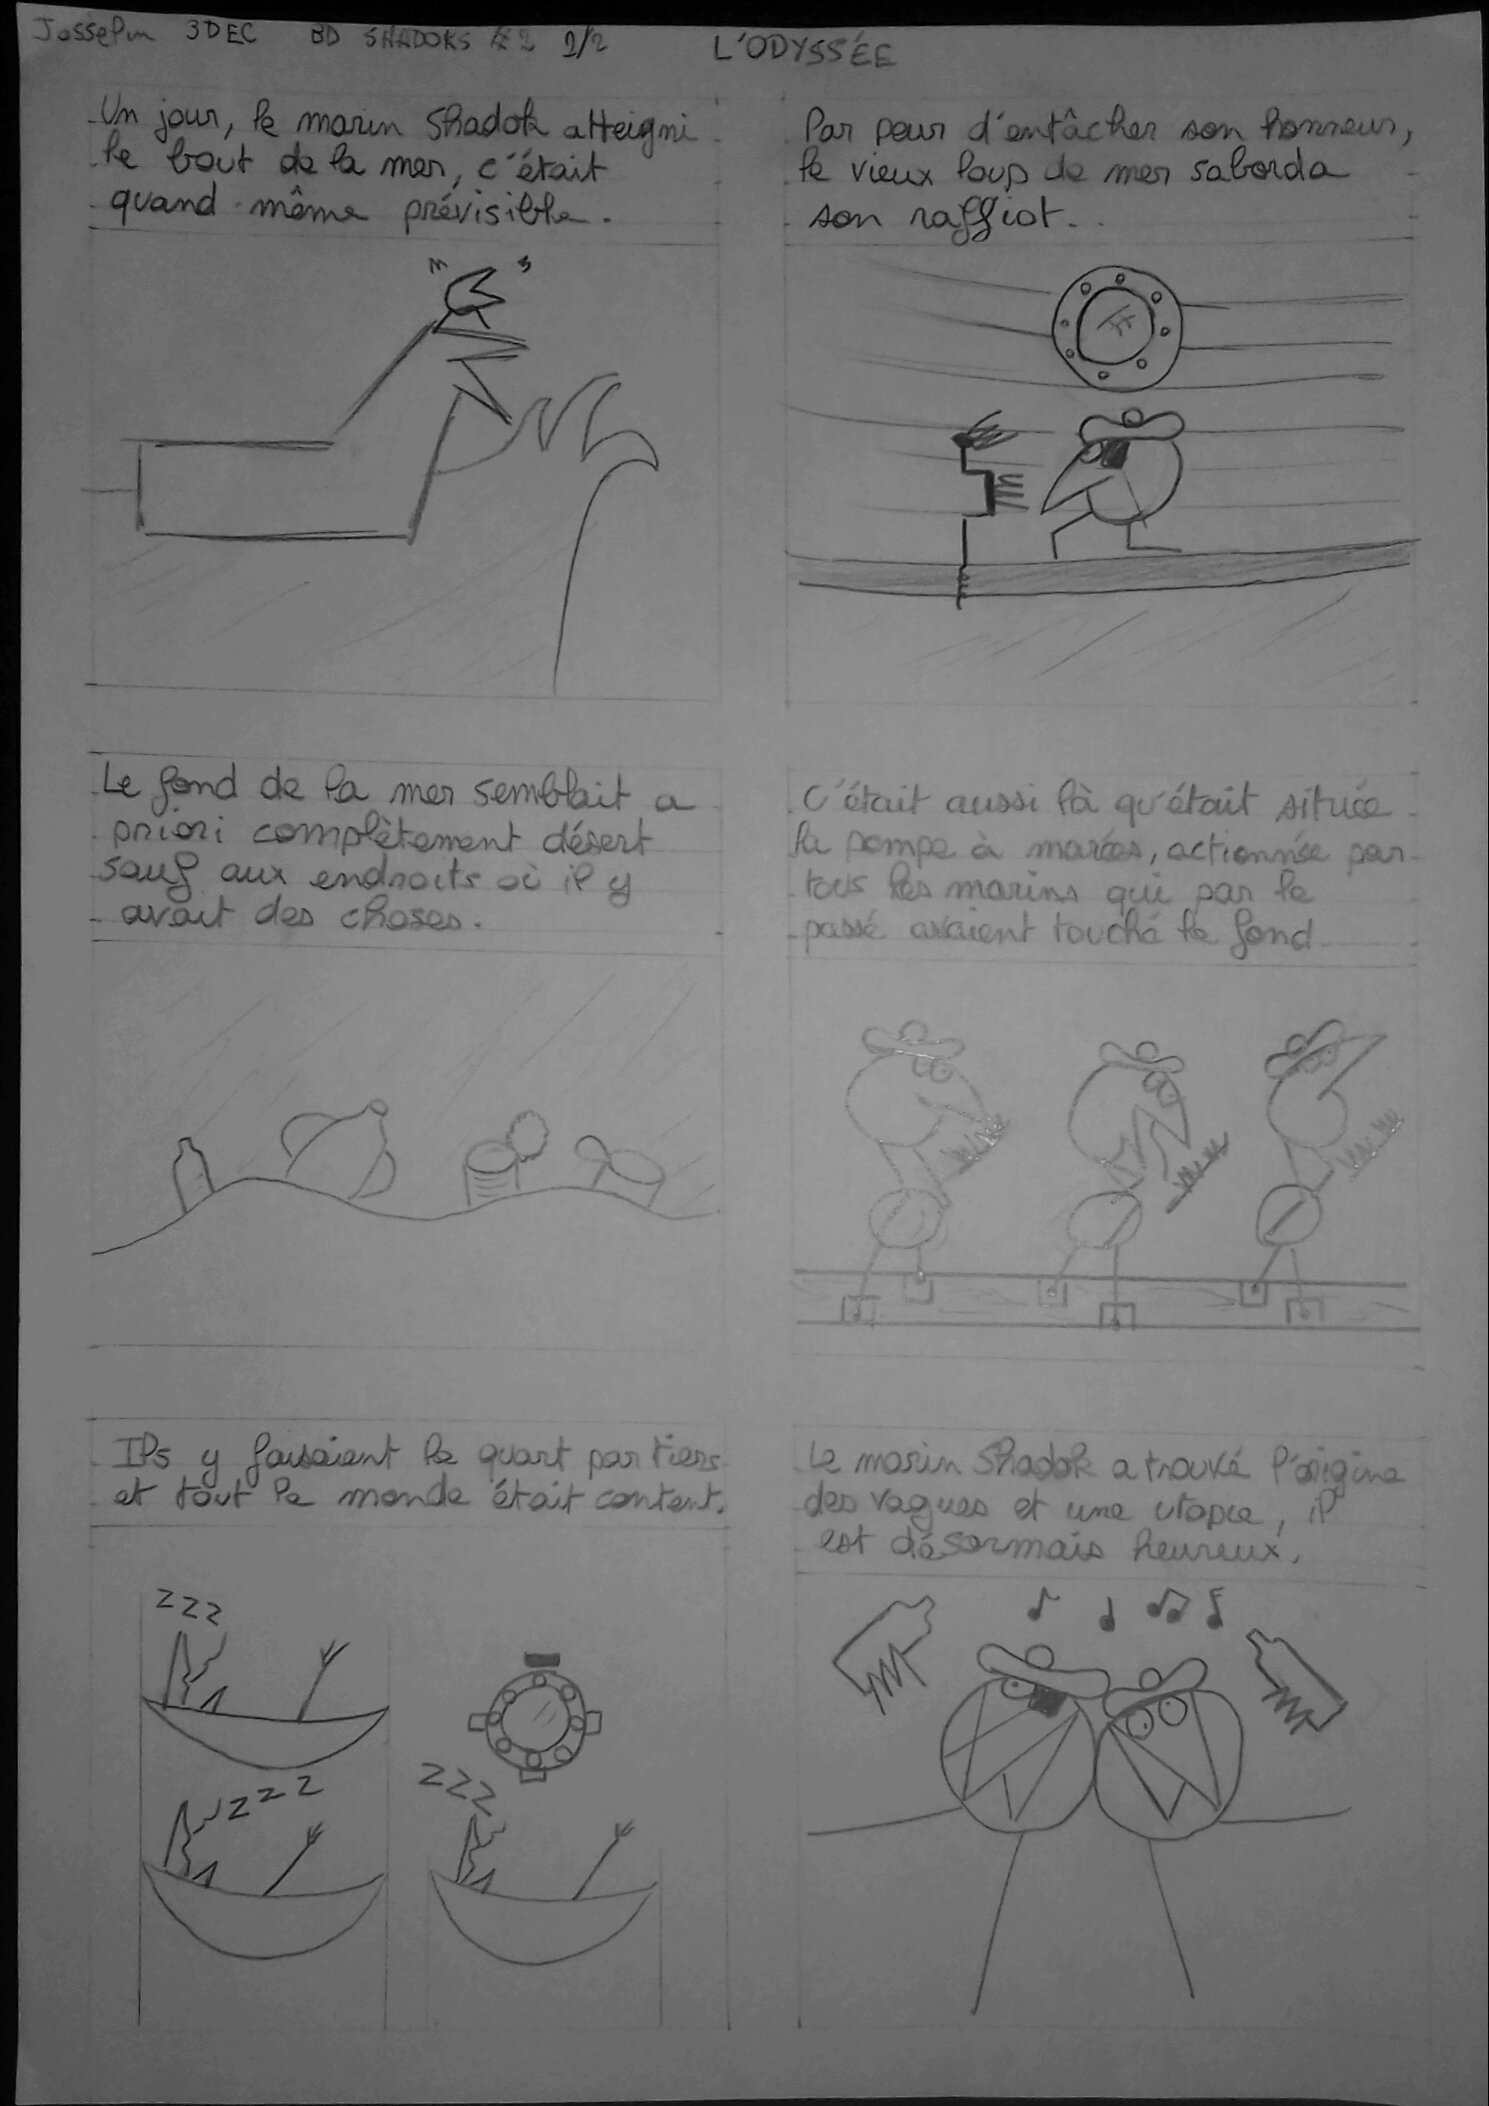 Josselin 3DEC BD SHADOKS 2/2 L'ODYSSÉE
Un jour, le marin Shadok atteigni
le bout de la mer, c'était
quand même prévisible.
Par peur d'entâcher son honneur,
le vieux loup de mer saborda
son raffiot.
Le fond de la mer semblait a
priori complètement désert
sauf aux endroits où il y
avait des choses.
C'était aussi là qu'était située
la pompe à marées, actionnée par
tous les marins qui par le
passé avaient touché le fond.
Ils y faisaient le quart par tiers
et tout le monde était content.
ZZZ
ZZZ
ZZZ
Le marin Shadok a trouvé l'origine
des vagues et une utopie, il
est désormais heureux.